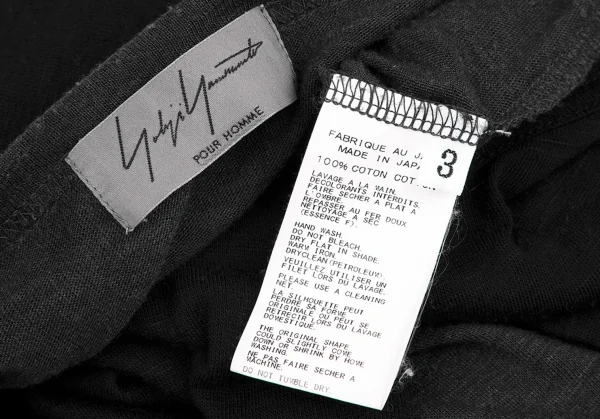 Yohji Yamamoto
POUR HOMME
3
FABRIQUE AU J.
MADE IN JAP
100% COTON COT
LAVAGE A LA MAIN.
DECOLORANTS INTERDITS.
FAIRE SECHER A PLAT A
L'OMBRE.
REPASSER AU FER DOUX
NETTOYAGE A SEC
(ESSENCE F).
HAND WASH.
DO NOT BLEACH.
DRY FLAT IN SHADE.
WARM IRON.
DRYCLEAN(PETROLEUM).
VEUILLEZ UTILISER UN
FILET LORS DU LAVAGE.
PLEASE USE A CLEANING
NET
LA SILHOUETTE PEUT
PERDRE SA FORME
ORIGINALE OU PEUT SE
RETRECIR LORS DU LAVAGE
DOMESTIQUE.
THE ORIGINAL SHAPE
COULD SLIGHTLY COME
DOWN OR SHRINK BY HOME
WASHING.
NE PAS FAIRE SECHER A
MACHINE.
DO NOT TUMBLE DRY